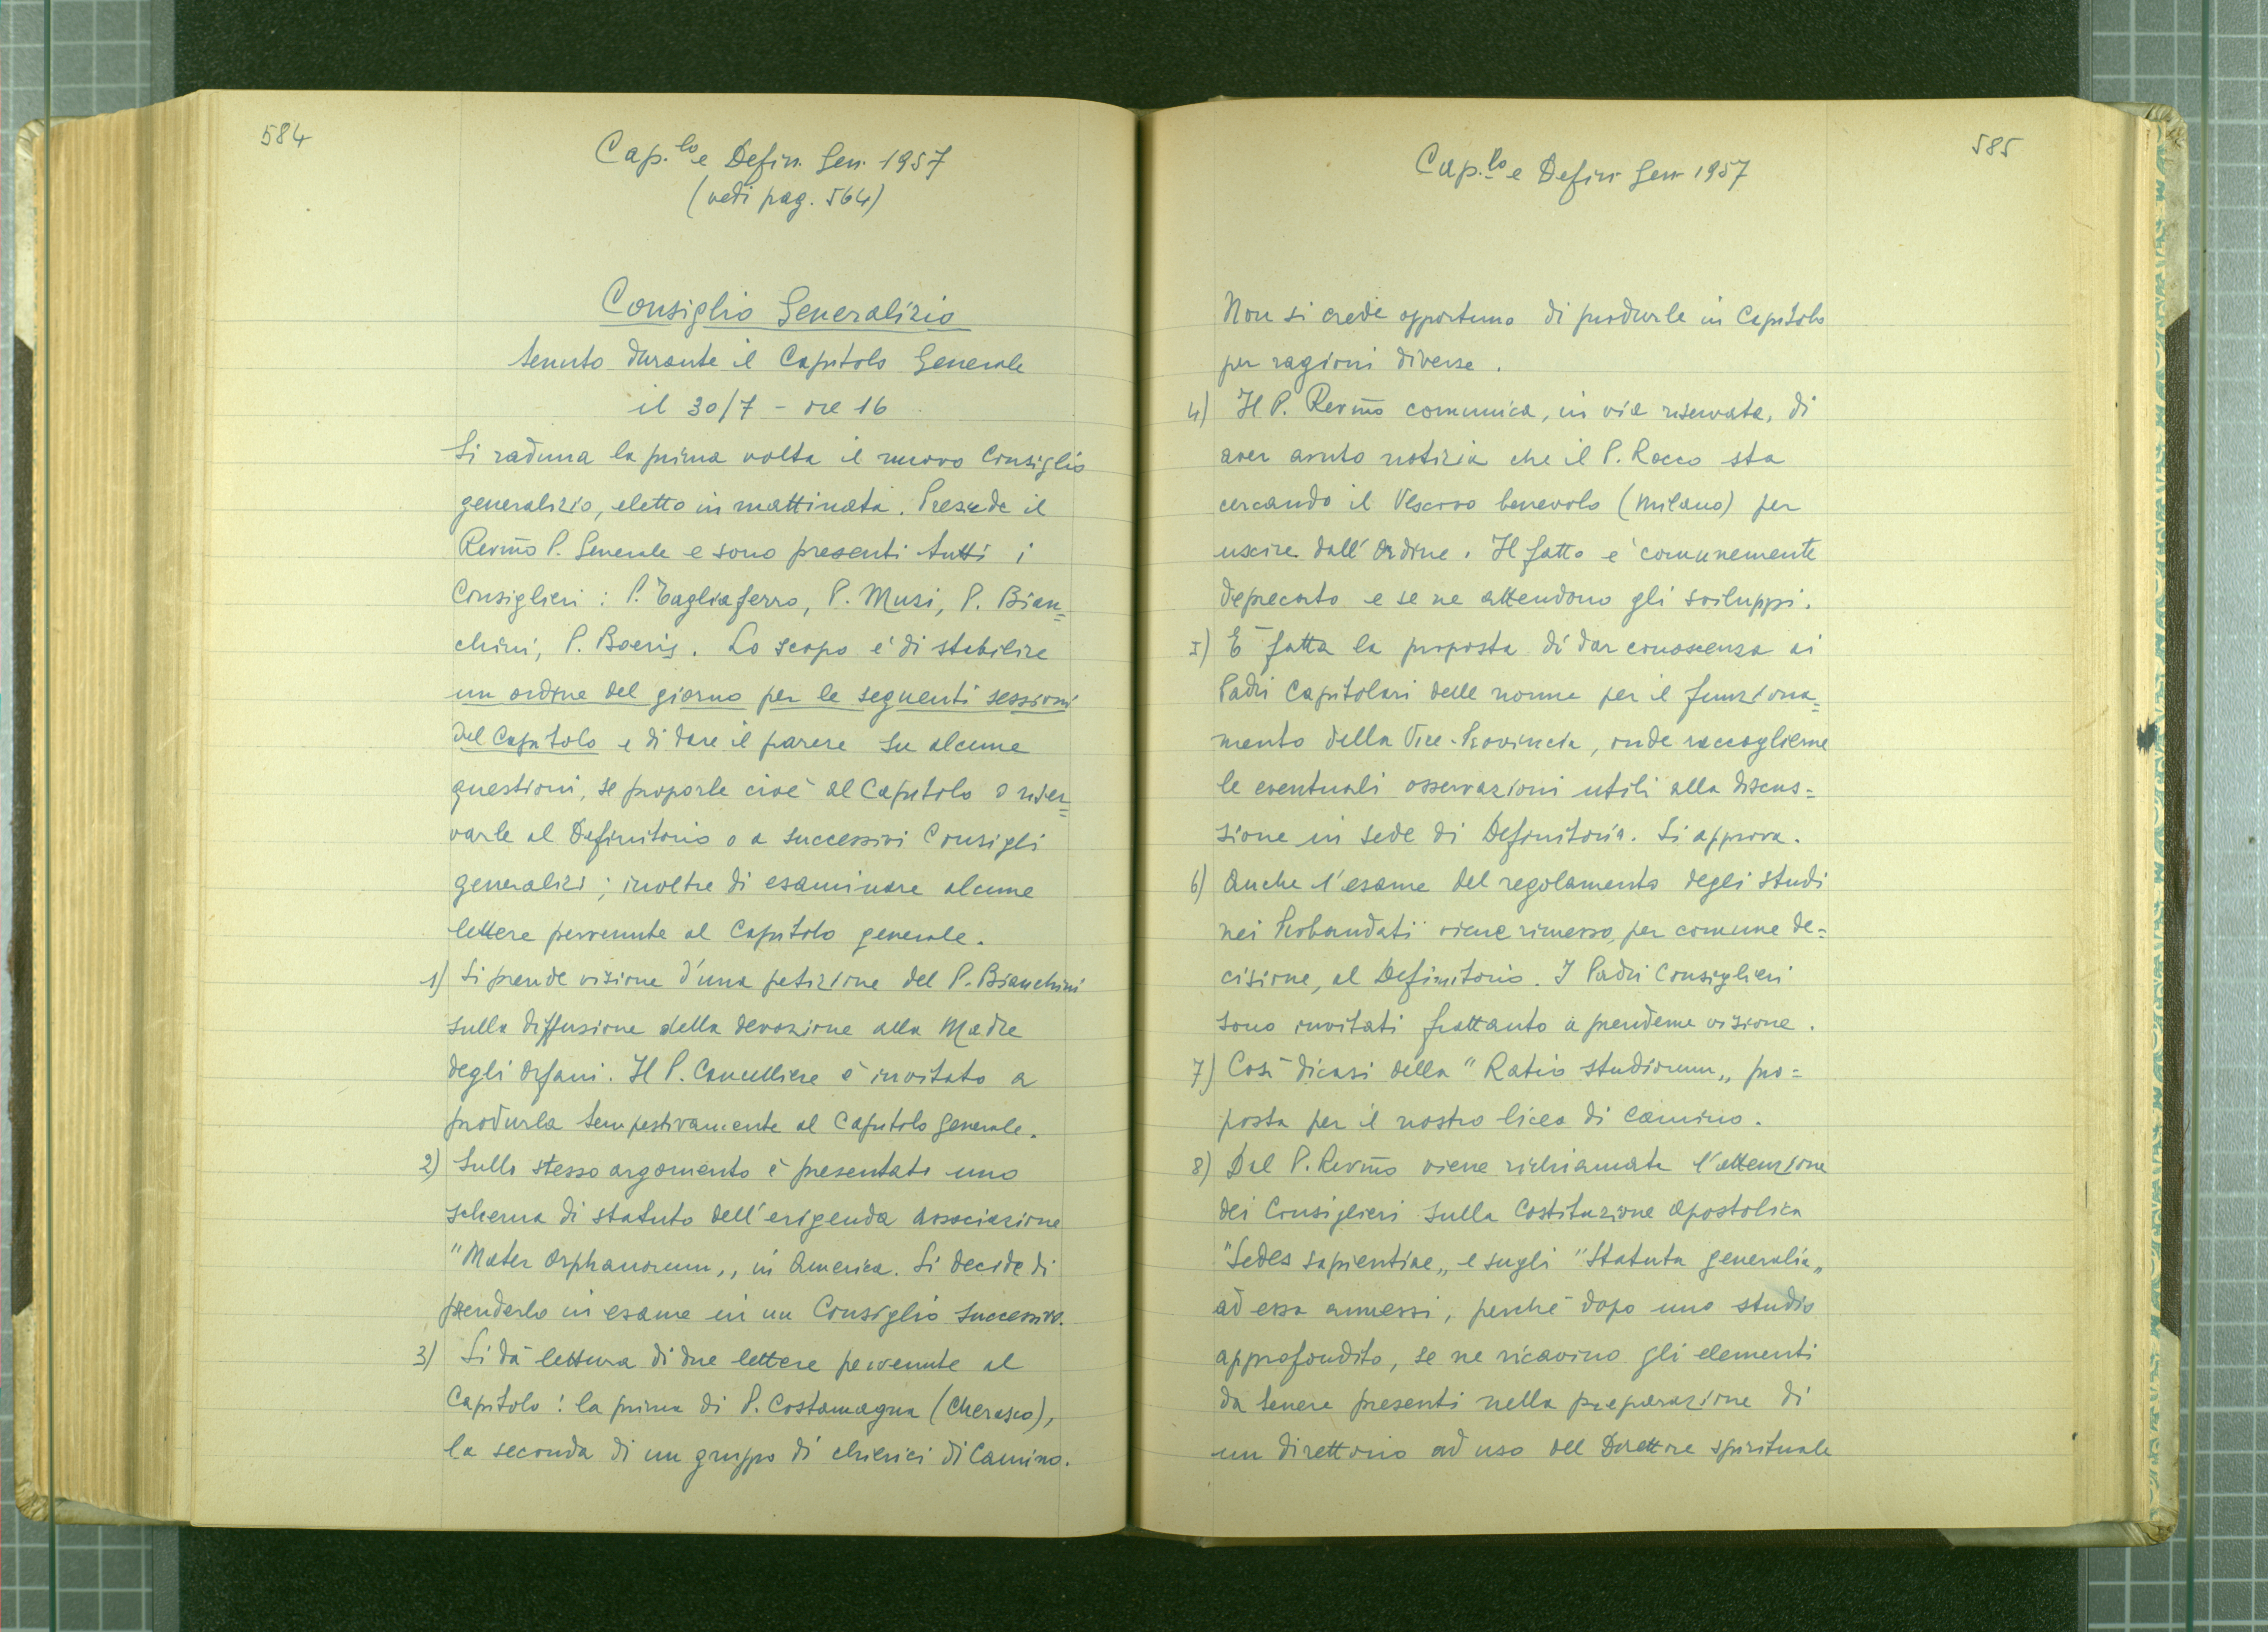 584
Cap.lo e Defin. Gen. 1957
(vedi pag. 564)
Consiglio Generalizio
tenuto durante il Capitolo Generale
il 30/7 - ore 16
Si raduna la prima volta il nuovo Consiglio
generalizio, eletto in mattinata. Presiede il
Rev̅m̅o P. Generale e sono presenti tutti i
Consiglieri : P. Tagliaferro, P. Musi, P. Bian=
chini, P. Boeris. Lo scopo è di stabilire
un ordine del giorno per le seguenti sessioni
del Capitolo e di dare il parere su alcune
questioni, se proporle cioè al Capitolo o riser=
varle al Definitorio o a successivi Consigli
generalizi ; inoltre di esaminare alcune
lettere pervenute al Capitolo generale.
1) Si prende visione d'una petizione del P. Bianchini
sulla diffusione della devozione alla Madre
degli Orfani. Il P. Cancelliere è invitato a
produrla tempestivamente al Capitolo generale.
2) Sullo stesso argomento è presentato uno
schema di statuto dell'erigenda Associazione
"Mater Orphanorum„ in America. Si decide di
prenderlo in esame in un Consiglio successivo.
3) Si dà lettura di due lettere pervenute al
Capitolo : la prima di P. Costamagna (Cherasco),
la seconda di un gruppo di chierici di Camino.
585
Cap.lo e Defin Gen 1957
Non si crede opportuno di produrle in Capitolo
per ragioni diverse.
4) Il P. Rev̅m̅o comunica, in via riservata, di
aver avuto notizia che il P. Rocco sta
cercando il Vescovo benevolo (Milano) per
uscire dall'Ordine. Il fatto è comunemente
deprecato e se ne attendono gli sviluppi.
5) È fatta la proposta di dar conoscenza ai
Padri Capitolari delle norme per il funziona=
mento della Vice-Provincia, onde raccoglierne
le eventuali osservazioni utili alla discus=
sione in sede di Definitorio. Si approva.
6) Anche l'esame del regolamento degli studi
nei Probandati viene rimesso, per comune de=
cisione, al Definitorio. I Padri Consiglieri
sono invitati frattanto a prenderne visione.
7) Così dicasi della "Ratio studiorum„ pro=
posta per il nostro liceo di Camino.
8) Dal P. Rev̅m̅o viene richiamata l'attenzione
dei Consiglieri sulla Costituzione Apostolica
"Sedes sapientiae„ e sugli "Statuta generalia„
ad essa annessi, perché dopo uno studio
approfondito, se ne ricavino gli elementi
da tenere presenti nella preparazione di
un direttorio ad uso del Direttore spirituale